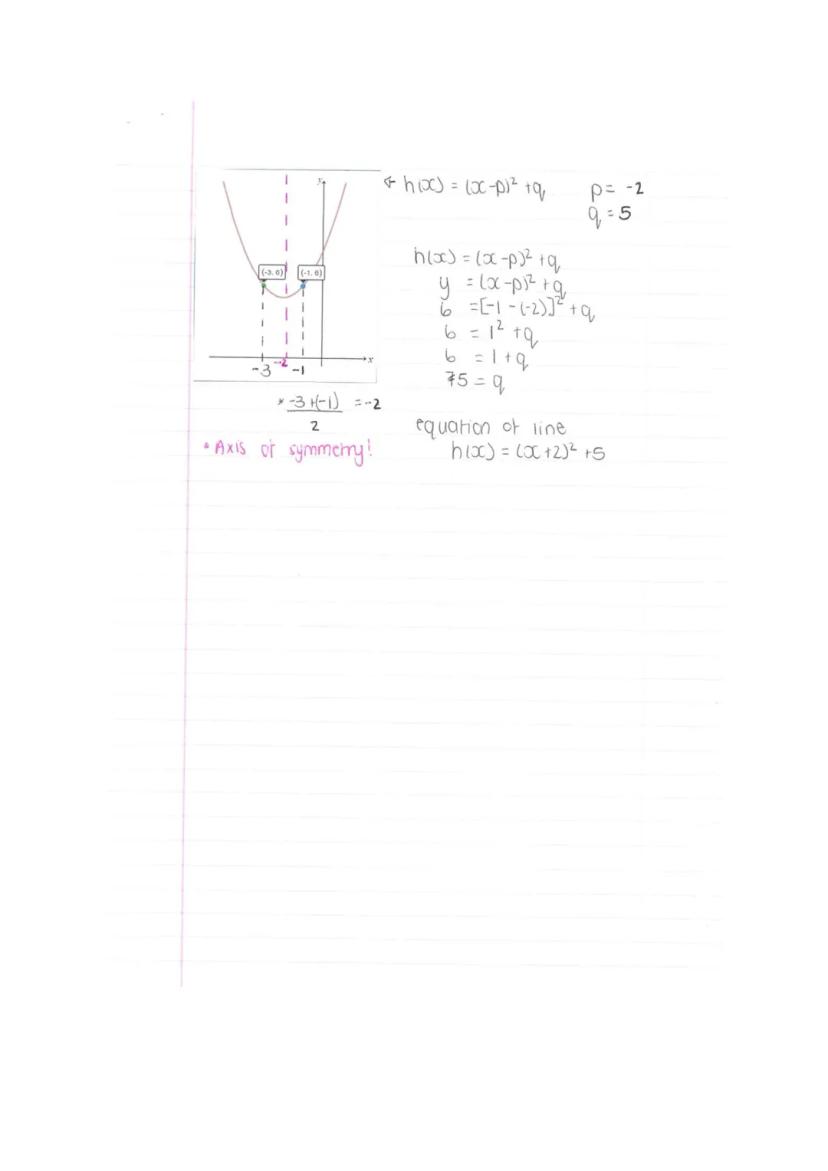 y
← h(x) = (x-p)² + q
p = -2
q = 5
(-3, 6) (-1, 6)
x
-3 -2 -1
* -3+(-1) = -2
2
* Axis of symmetry!
h(x) = (x-p)² + q
y = (x-p)² + q
6 = [-1 - (-2)]² + q
6 = 1² + q
6 = 1 + q
5 = q
equation of line
h(x) = (x+2)² + 5